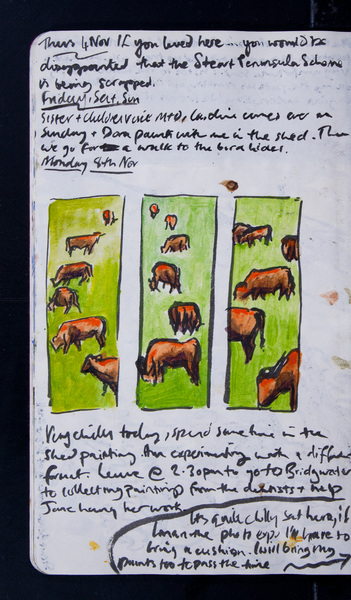 Thurs 4 Nov If you lived here ... you would be
disappointed that the Steart Peninsula Scheme
is being scrapped.
Friday, Sat, Sun
Sister + children visit M+D, Caroline comes over on
Sunday + Dora paints with me in the shed. Then
we go for a walk to the bird hides.
Monday 8th Nov
Very chilly today, spend some time in the
shed painting. Am experimenting with a different
front. Leave @ 2.30pm to go to Bridgwater
to collecting paintings from the dentists + help
Jane hang her work
Its quite chilly sat here, if
I man the photo expo I'll have to
bring a cushion. I will bring my
paints too to pass the time